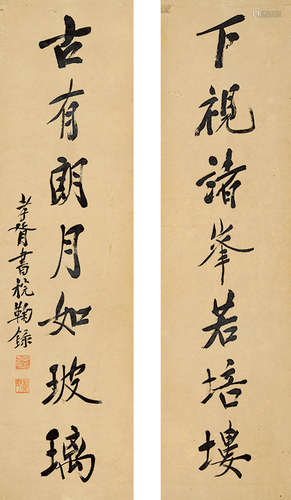 下視諸峯若培塿
古有朗月如玻璃
孝胥書於鞠錄